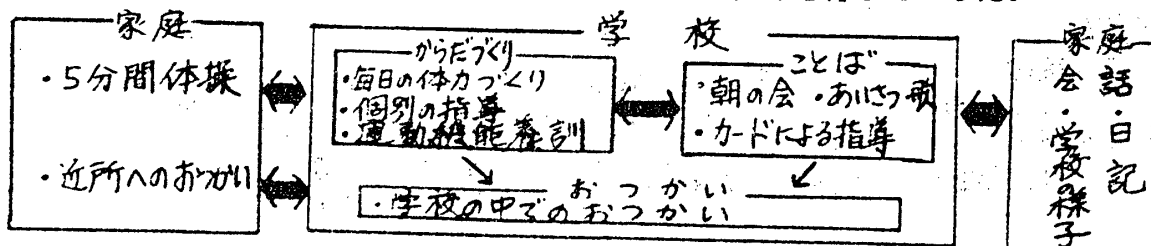 家庭
・5分間体操
・近所へのおつかい
学校
からだづくり
・毎日の体力づくり
・個別の指導
・運動機能養訓
ことば
・朝の会・あいさつ歌
・カードによる指導
おつかい
・学校の中でのおつかい
家庭
会話・日記
・学校の様子